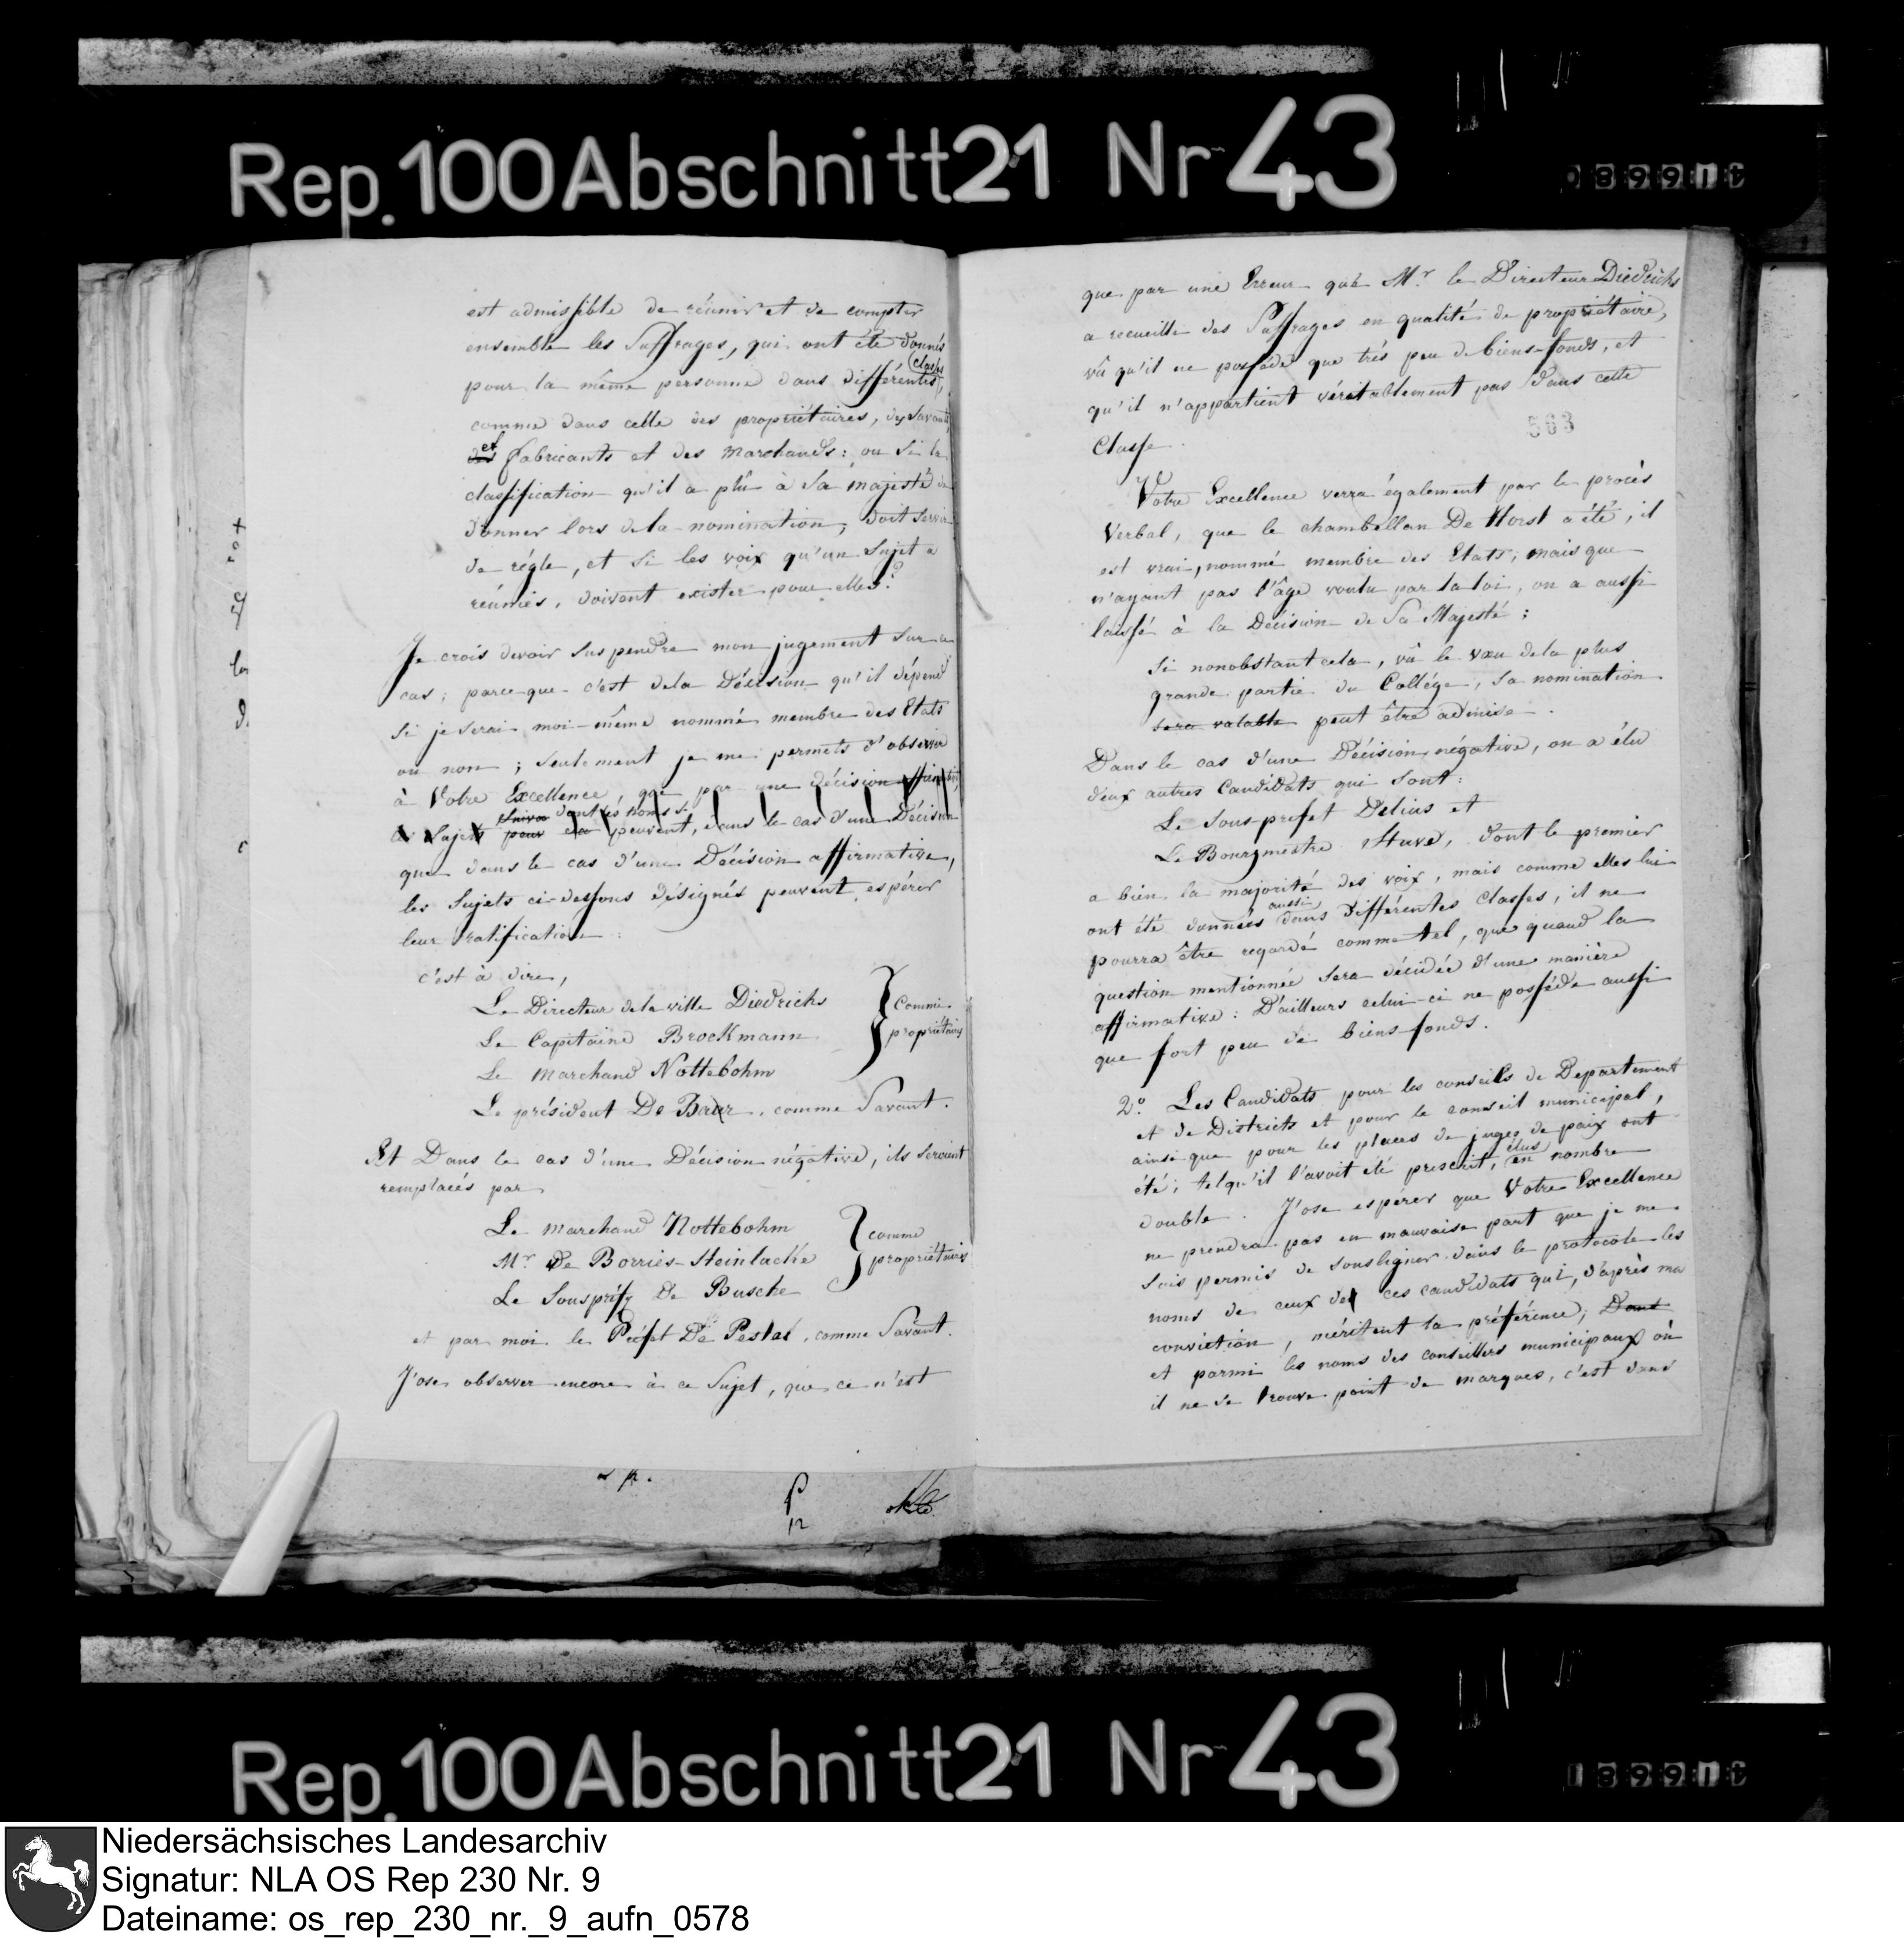 Rep. 100 Abschnitt 21 Nr 43
est admissible de réunir et de compter
ensemble les Suffrages, qui ont été donnés
classes
pour la même personne dans différentes,
comme dans celle des propriétaires, des Savants
et
des fabricants et des Marchands: ou si la
classification qu'il a plû à Sa Majesté de
donner lors de la nomination, doit servir
de régle, et si les voix qu'un Sujet a
réunies, doivent exister pour elles?
Je crois devoir suspendre mon jugement sur ce
cas; parce que c'est de la Décision qu'il dépend
si je serai moi-même nommé membre des Etats
ou non; seulement je me permets d'observer
à Votre Excellence, que par une décision affirmative
dont les noms
Sujets pour peuvent, dans le cas d'une Décision
que dans le cas d'une Décision affirmative,
les Sujets ci-dessous désignés peuvent espérer
leur ratification:
c'est à dire,
Le Directeur de la ville Diedrichs
Le Capitaine Brockmann
Le Marchand Nottebohm
comme
propriétaires
Le président De Baer, comme Savant.
Et Dans le cas d'une Décision négative, ils seroient
remplacés par
Le Marchand Nottebohm
Mr de Borries-Steinlacke
Le Souspréfet De Busche
comme
propriétaires
et par moi le Préfet De Pestel, comme Savant.
J'ose observer encore à ce Sujet, que ce n'est
que par une Erreur que Mr. le Directeur Diedrichs
a recueilli des Suffrages en qualité de propriétaire,
vû qu'il ne possède que très peu de biens-fonds, et
qu'il n'appartient véritablement pas dans cette
503
Classe.
Votre Excellence verra également par le procès
Verbal, que le chambellan De Horst a été, il
est vrai, nommé membre des Etats; mais que
n'ayant pas l'âge voulu par la loi, on a aussi
laissé à la Décision de Sa Majesté:
si nonobstant cela, vû le vœu de la plus
grande partie du Collége, sa nomination
sera valable peut être admise.
Dans le cas d'une Décision négative, on a élu
deux autres Candidats qui sont:
Le Sous prefet Delius et
Le Bourgmestre Stuve, dont le premier
a bien la majorité des voix, mais comme elles lui
aussi
ont été données dans différentes Classes, il ne
pourra être regardé comme tel, que quand la
question mentionnée sera décidée d'une manière
affirmative: D'ailleurs celui-ci ne possède aussi
que fort peu de biens-fonds.
2.º Les Candidats pour les conseils de Departement
et de Districts et pour le conseil municipal,
ainsi que pour les places de juges de paix ont
élus
été; tel qu'il l'avoit été prescrit, en nombre
double. J'ose esperer que Votre Excellence
ne prendra pas en mauvaise part que je me
sois permis de sousligner dans le protocole les
noms de ceux de ces candidats qui, d'après ma
conviction, méritent la préférence; Dont
et parmi les noms des conseillers municipaux où
il ne se trouve point de marques, c'est dans
Rep. 100 Abschnitt 21 Nr 43
Niedersächsisches Landesarchiv
Signatur: NLA OS Rep 230 Nr. 9
Dateiname: os_rep_230_nr._9_aufn_0578